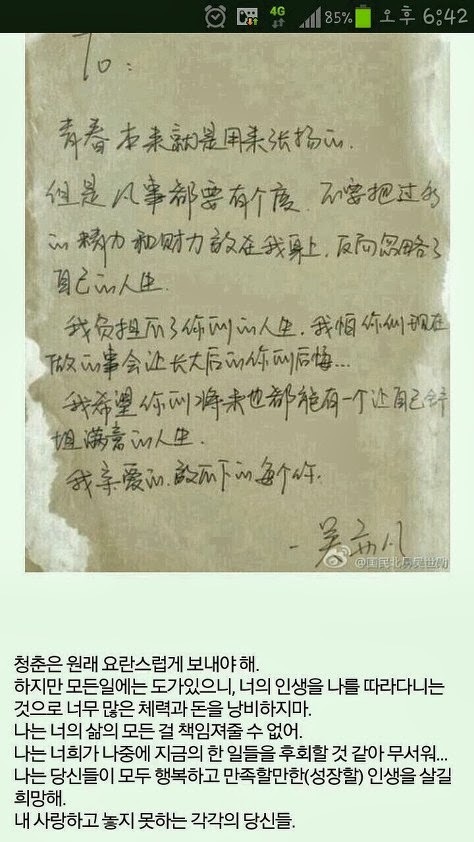 4G
85% 오후 6:42
To:
青春本来就是用来张扬的.
但是凡事都要有个度.不要把过多
的精力和财力放在我身上,反而忽略了
自己的人生.
我负担不了你们的人生.我怕你们现在
做的事会让长大后的你们后悔...
我希望你们将来也都能有一个让自己舒
坦满意的人生.
我亲爱的.放不下的每个你.
-吴亦凡
@国民北鼻吴世勋
청춘은 원래 요란스럽게 보내야 해.
하지만 모든일에는 도가있으니, 너의 인생을 나를 따라다니는
것으로 너무 많은 체력과 돈을 낭비하지마.
나는 너의 삶의 모든 걸 책임져줄 수 없어.
나는 너희가 나중에 지금의 한 일들을 후회할 것 같아 무서워...
나는 당신들이 모두 행복하고 만족할만한(성장할) 인생을 살길
희망해.
내 사랑하고 놓지 못하는 각각의 당신들.